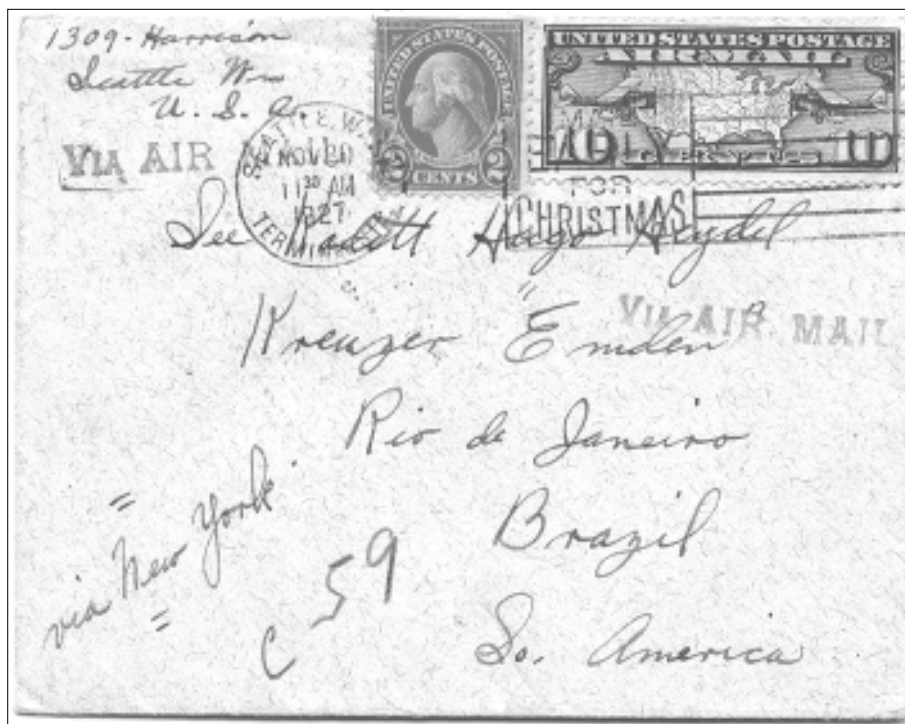 1309 - Harrison
Seattle Wn
U. S. A.
VIA AIR
SEATTLE, W
NOV 20
11 30 AM
1927
TERMINAL
UNITED STATES POSTAGE
2 CENTS 2
UNITED STATES POSTAGE
AIR MAIL
10 10
FOR
CHRISTMAS
See Kadett Hugo Heydel
VIA AIR MAIL
"Kreuzer Emden"
Rio de Janeiro
Brazil
So. America
= via New York =
C 59